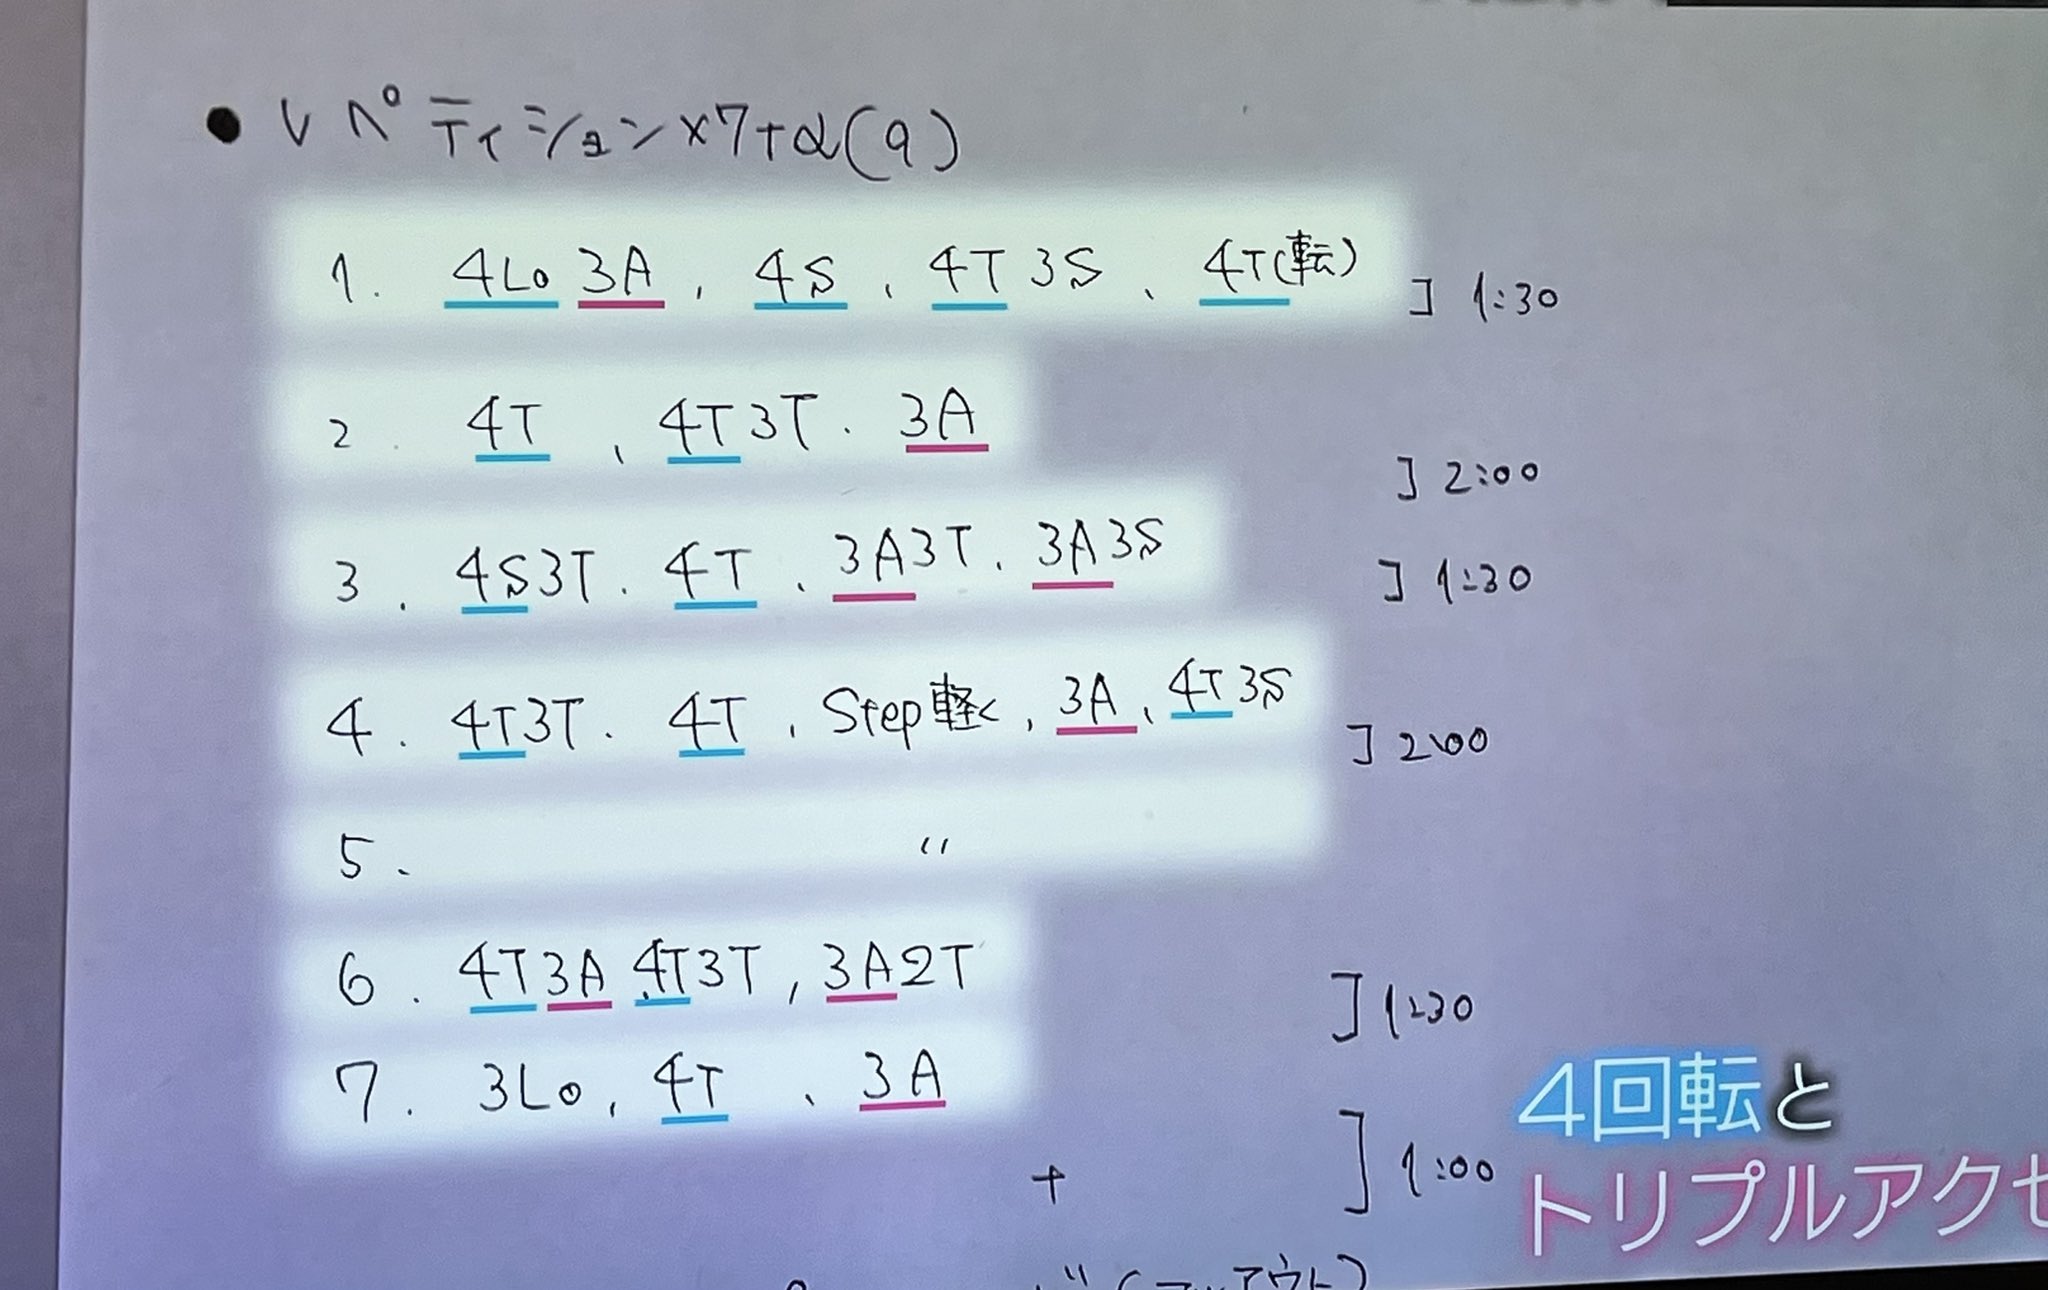 ● レペティション×7+α(9)
1. 4Lo 3A, 4S, 4T 3S, 4T(転)
] 1:30
2. 4T, 4T3T. 3A
] 2:00
3. 4S3T. 4T, 3A3T. 3A3S
] 1:30
4. 4T3T. 4T, Step 軽く, 3A, 4T3S
] 2:00
5. 〃
6. 4T3A 4T3T, 3A2T
] 1:30
7. 3Lo, 4T, 3A
] 1:00
+
4回転と
トリプルアクセ